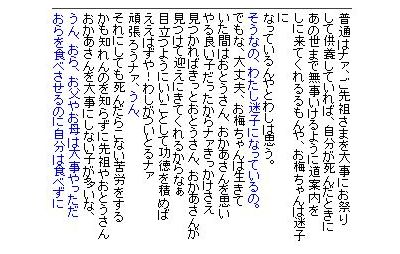 普通はナァ、ご先祖さまを大事にお祭り
して供養していれば、自分が死んだときに
あの世まで無事いけるように道案内を
しに来てくれるもんや、お梅ちゃんは迷子
に
なっているんやとわしは思う。
そうなの、わたし迷子になっているの。
でもな、大丈夫、お梅ちゃんは生きて
いた間はおとうさん、おかあさんを思い
やる良い子だったからナァきっかけさえ
見つかればきっとおとうさん、おかあさんが
見つけて迎えにきてくれるからなぁ
目立つようにいいことして功徳を積めば
ええはずや!わしがついとるナァ
頑張ろうナァ、うん、
それにしても死んだらこない苦労をする
かも知れんのを知らずに先祖やおとうさん
おかあさんを大事にしない子が多いな、
うん、おら、お父やお母は大事やっただ
おらを食べさせるのに自分は食べずに